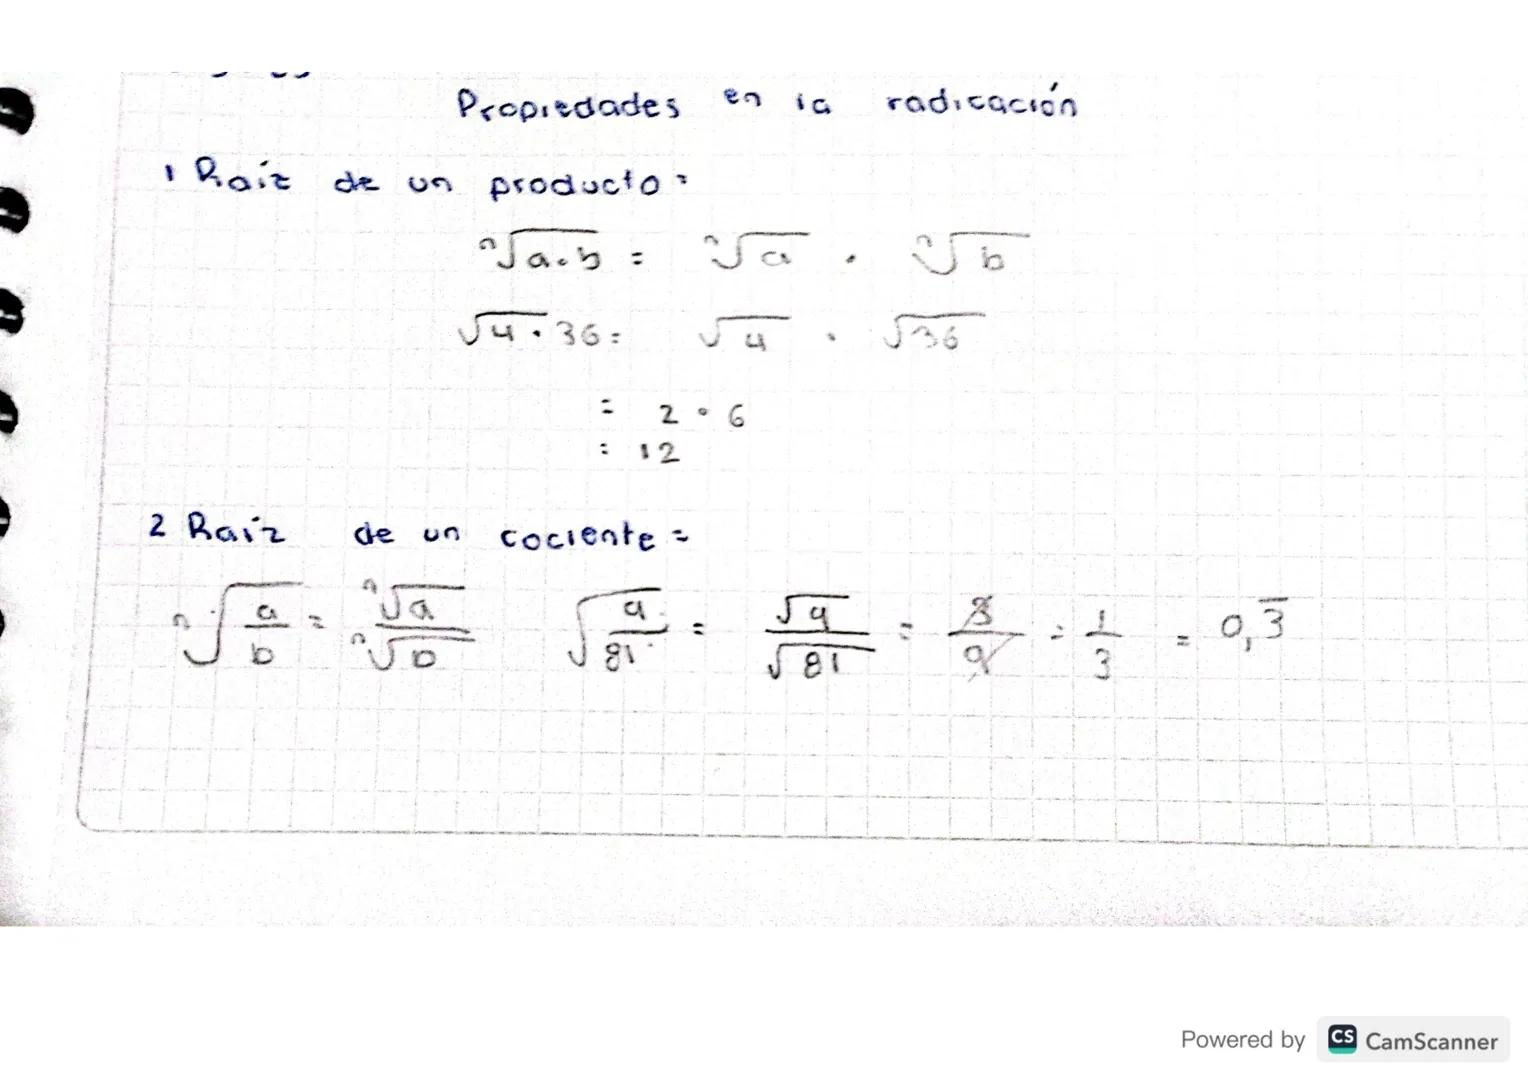 Propiedades en la radicación
1 Raíz de un producto:
ⁿ√a·b = ⁿ√a · ⁿ√b
√4·36 = √4 · √36
= 2 · 6
= 12
2 Raíz de un cociente =
ⁿ√(a/b) = ⁿ√a/ⁿ√b √(9/81) = √9/√81 = 3/9 = 1/3 = 0,3̅
Powered by CS CamScanner